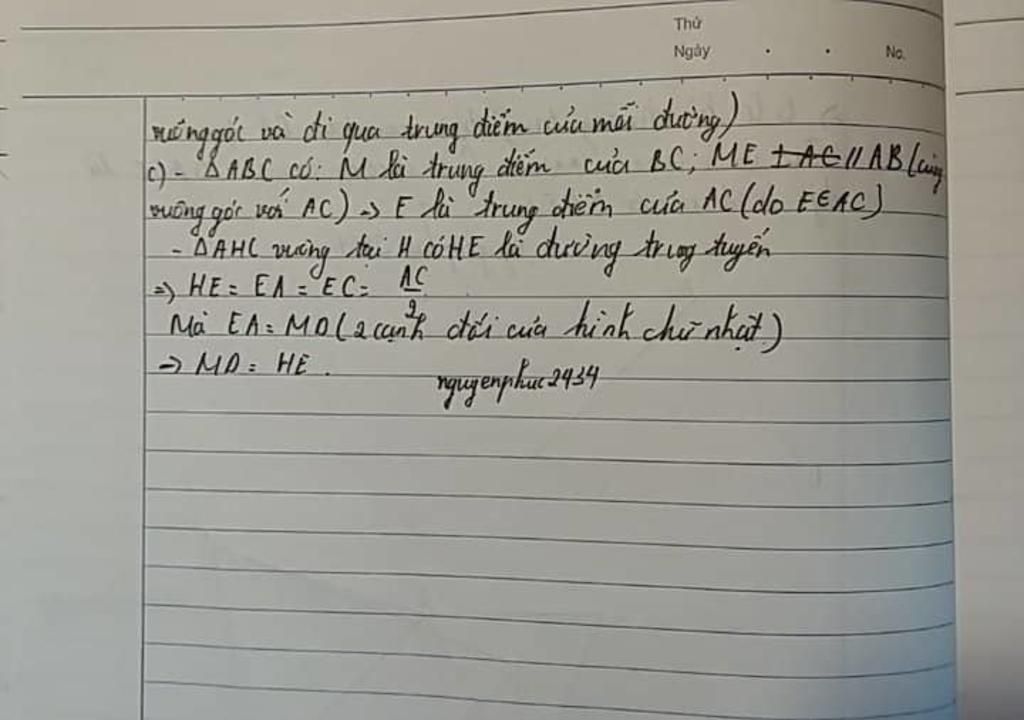 Thứ
Ngày . . No.
vuông góc và đi qua trung điểm của mỗi đường)
c) - ΔABC có: M là trung điểm của BC; ME ⊥ AC // AB (cùng
vuông góc với AC) -> E là trung điểm của AC (do E∈AC)
- ΔAHC vuông tại H có HE là đường trung tuyến
=> HE = EA = EC = AC/2
Mà EA = MD (2 cạnh đối của hình chữ nhật)
-> MD = HE.
nguyenphuc2434